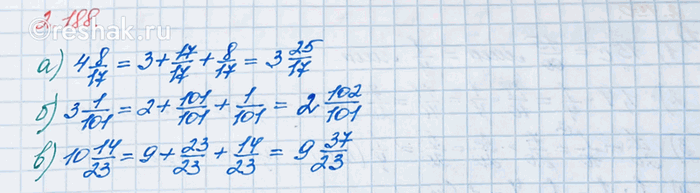 2.188.
reshak.ru
а) 4 8/17 = 3 + 17/17 + 8/17 = 3 25/17
б) 3 1/101 = 2 + 101/101 + 1/101 = 2 102/101
в) 10 14/23 = 9 + 23/23 + 14/23 = 9 37/23